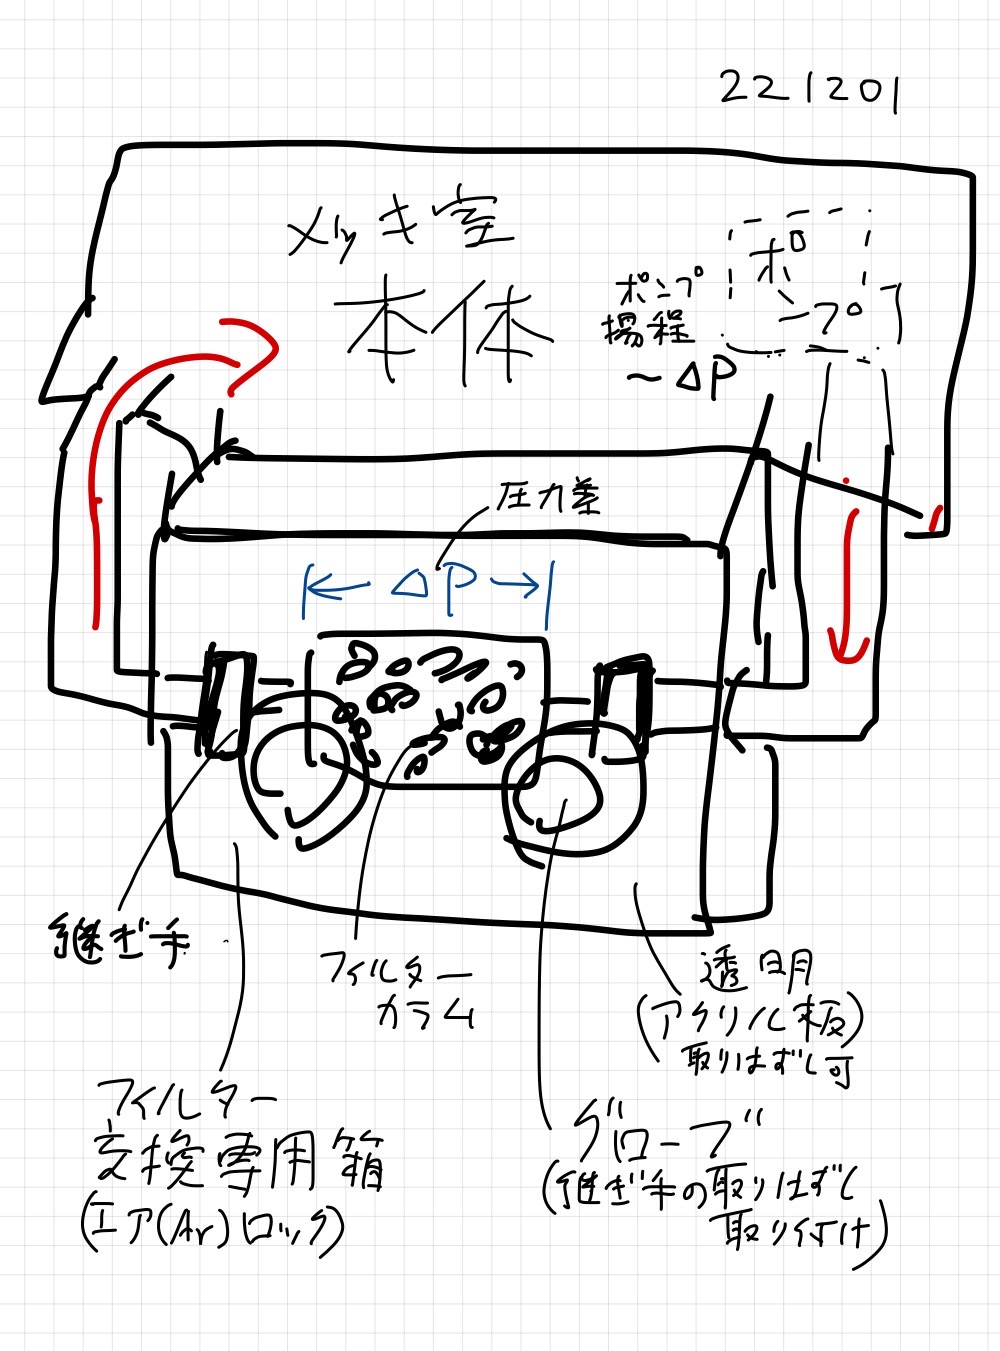 221201
メッキ室
本体
ポンプ
ポンプ
揚程
～ΔP
圧力差
ΔP
継ぎ手
フィルター
カラム
透明
(アクリル板)
取りはずし可
フィルター
交換専用箱
(エア(Ar)ロック)
グローブ
(継ぎ手の取りはずし
取り付け)